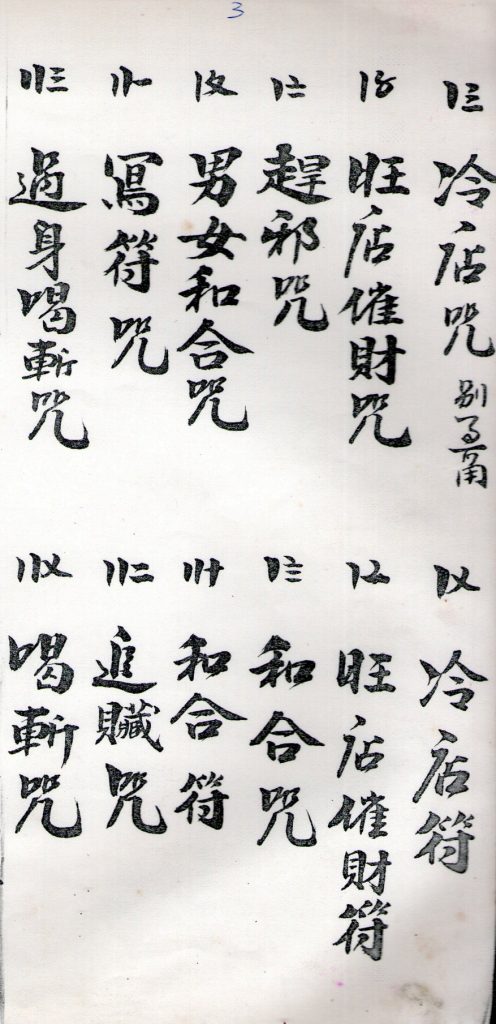 3
〡三 冷店咒
〡〤 冷店符
〡〥 旺店催財咒
〡〦 旺店催財符
〡〧 趕邪咒
〡〨 和合咒
〡〩 男女和合咒
〢十 和合符
〢一 寫符咒
〢二 追贓咒
〢三 過身喝斬咒
〢〤 喝斬咒